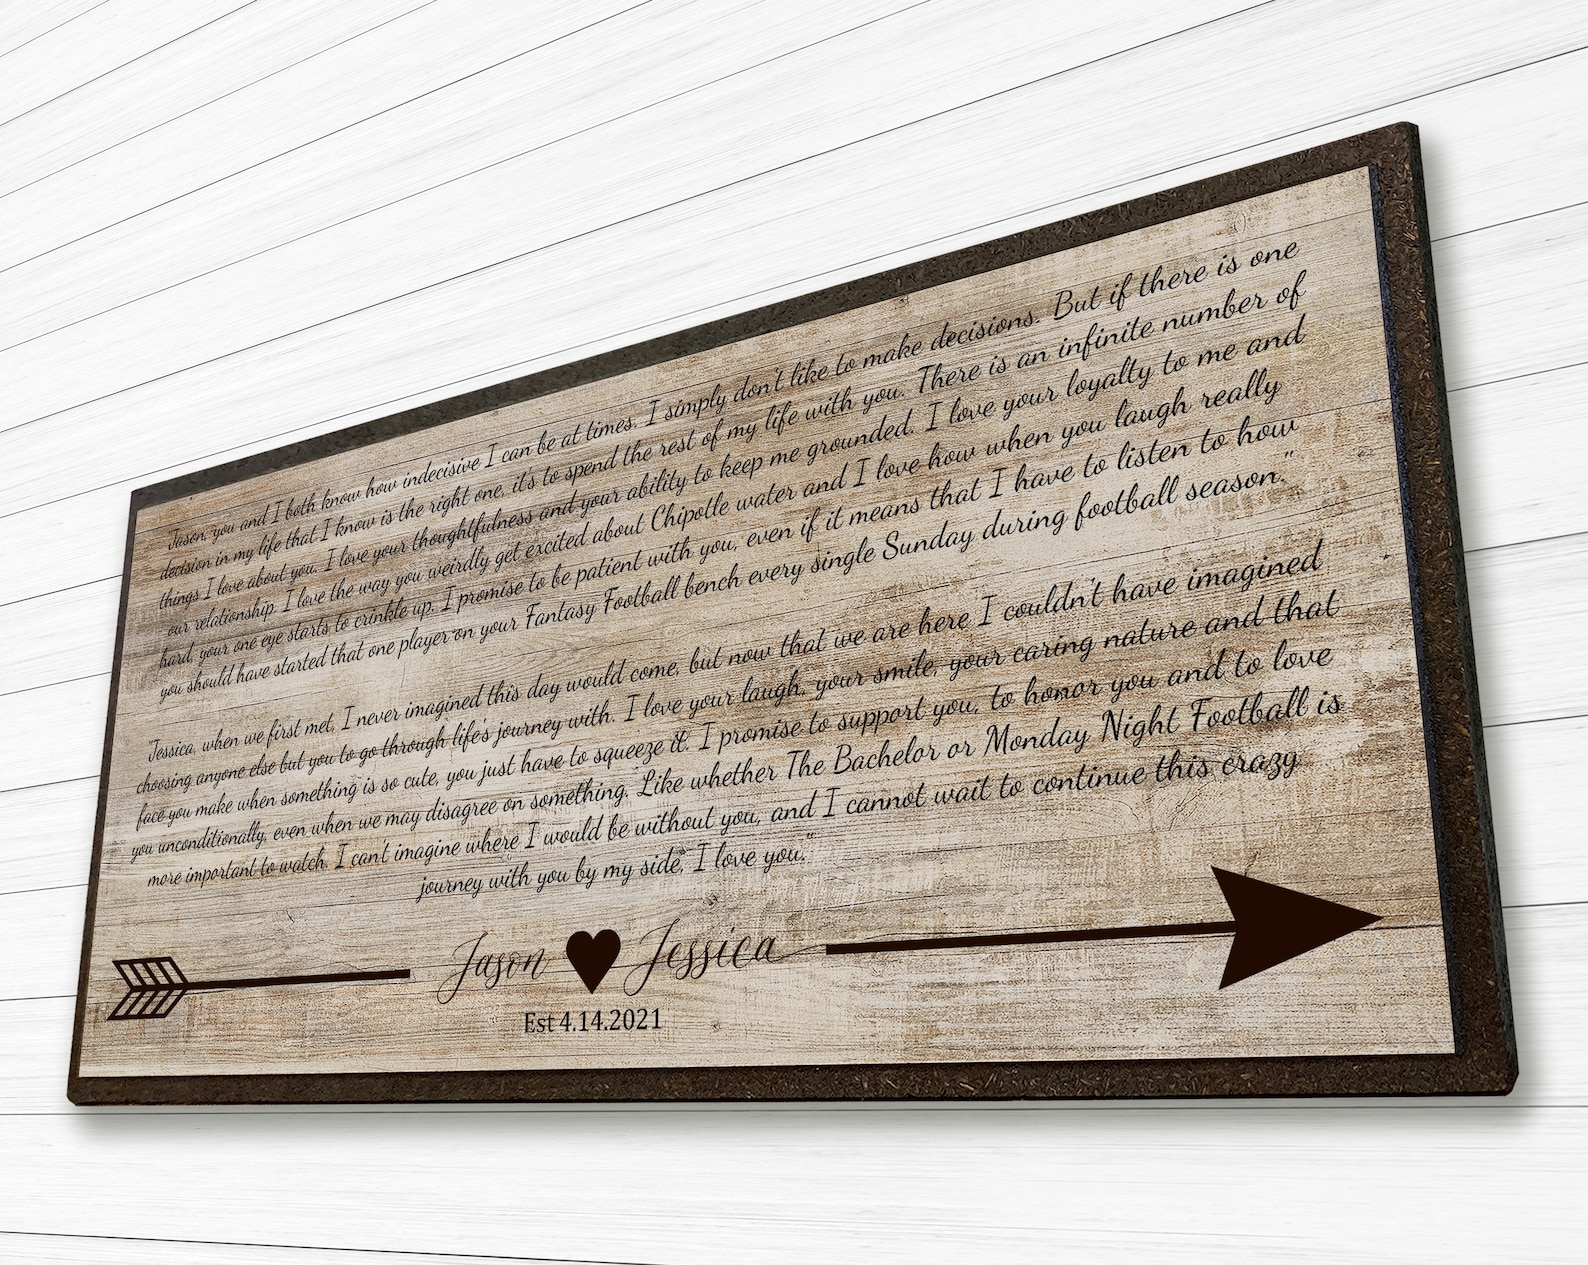 "Jason, you and I both know how indecisive I can be at times. I simply don't like to make decisions. But if there is one
decision in my life that I know is the right one, it's to spend the rest of my life with you. There is an infinite number of
things I love about you. I love your thoughtfulness and your ability to keep me grounded. I love your loyalty to me and
our relationship. I love the way you weirdly get excited about Chipotle water and I love how when you laugh really
hard, your one eye starts to crinkle up. I promise to be patient with you, even if it means that I have to listen to how
you should have started that one player on your Fantasy Football bench every single Sunday during football season."
"Jessica, when we first met, I never imagined this day would come, but now that we are here I couldn't have imagined
choosing anyone else but you to go through life's journey with. I love your laugh, your smile, your caring nature and that
face you make when something is so cute, you just have to squeeze it. I promise to support you, to honor you and to love
you unconditionally, even when we may disagree on something. Like whether The Bachelor or Monday Night Football is
more important to watch. I can't imagine where I would be without you, and I cannot wait to continue this crazy
journey with you by my side. I love you."
Jason Jessica
Est 4.14.2021